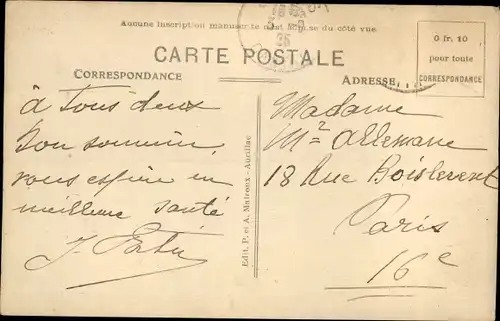 Aucune inscription manuscrite n'est admise du côté vue
CARTE POSTALE
CORRESPONDANCE
ADRESSE
0 fr. 10
pour toute
CORRESPONDANCE
à tous deux
Bon souvenir
vous espère en
meilleure santé
Edit. P. et A. Malroux - Aurillac
Madame
M² Allemane
18 Rue
Paris
16e